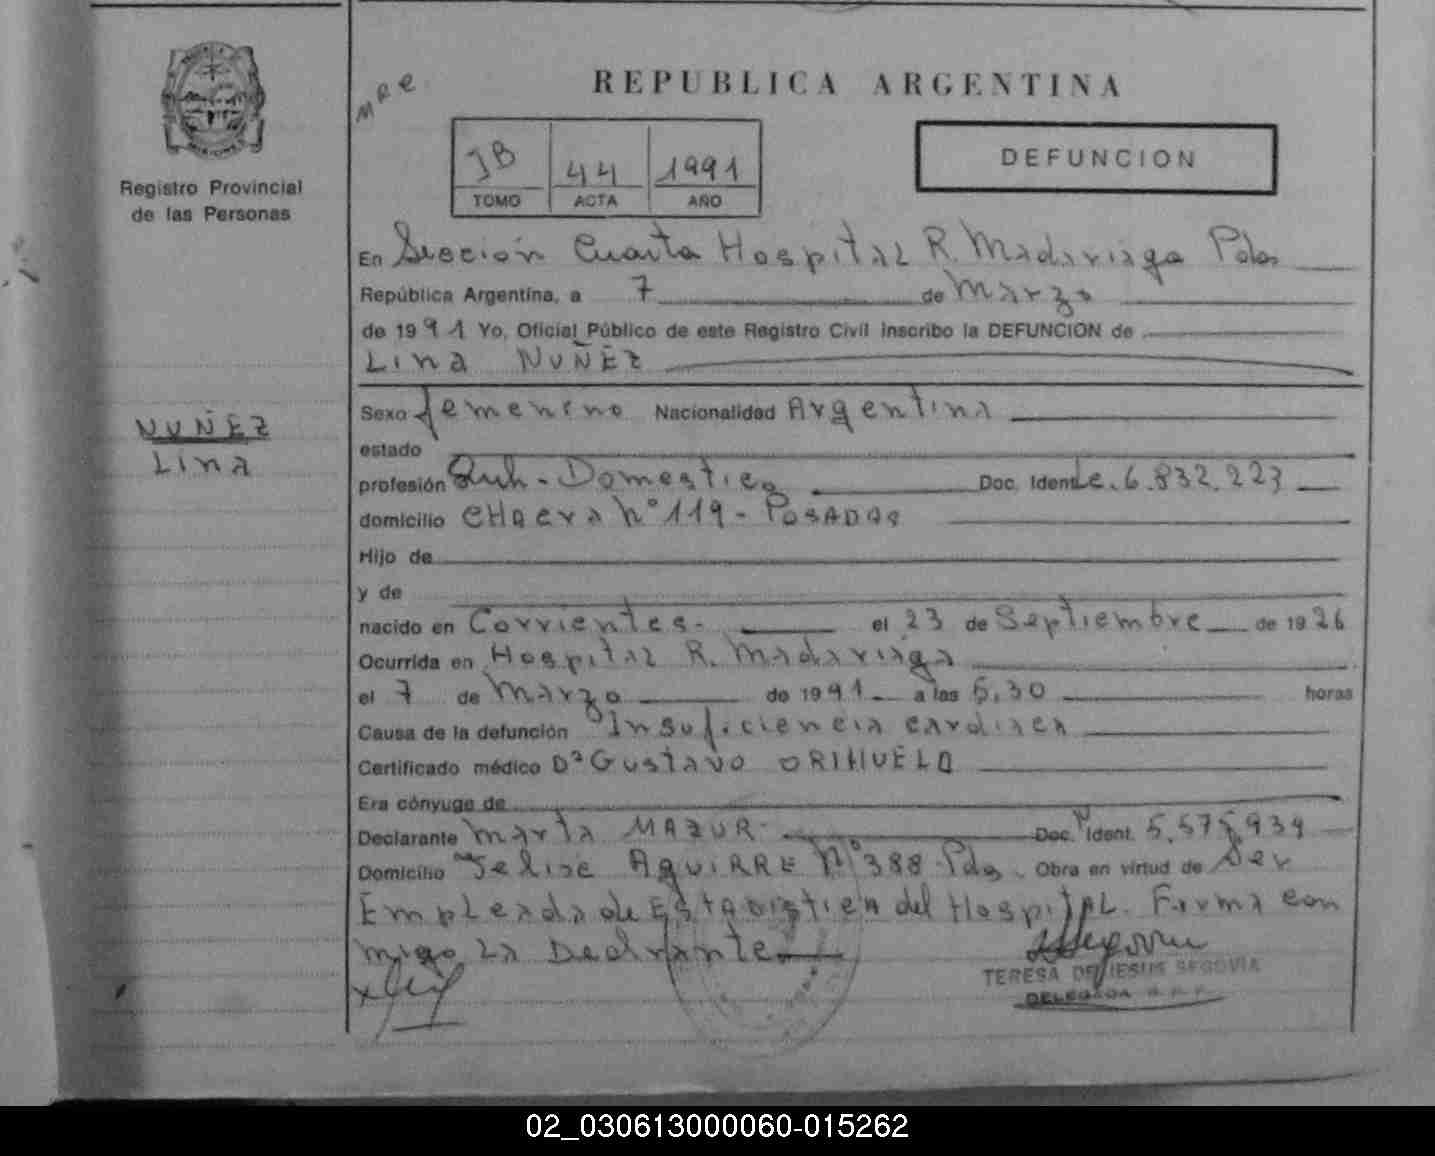 REPUBLICA ARGENTINA
MRE
JB 44 1991
TOMO ACTA AÑO
DEFUNCION
Registro Provincial
de las Personas
En Sección Cuarta Hospital R. Madariaga Pdas
República Argentina, a 7 de Marzo
de 1991 Yo, Oficial Público de este Registro Civil inscribo la DEFUNCION de
Lina NUÑEZ
NUÑEZ
Lina
Sexo femenino Nacionalidad Argentina
estado
profesión Domestica Doc. Ident. Lc. 6.832.223
domicilio CHacra n° 119 - POSADAS
Hijo de
y de
nacido en Corrientes. el 23 de Septiembre de 1926
Ocurrida en Hospital R. Madariaga
el 7 de Marzo de 1991 a las 5,30 horas
Causa de la defunción Insuficiencia cardiaca
Certificado médico Dr Gustavo ORIHUELA
Era cónyuge de
Declarante Marta MAZUR Doc. Ident. 5.575.939
Domicilio Felix AGUIRRE N° 388 Pdas. Obra en virtud de Ser
Empleada de ESTADistica del HospitAL. Firma con
migo La Declarante
TERESA DE JESUS SEGOVIA
DELEGADA R.P.P.
02_030613000060-015262